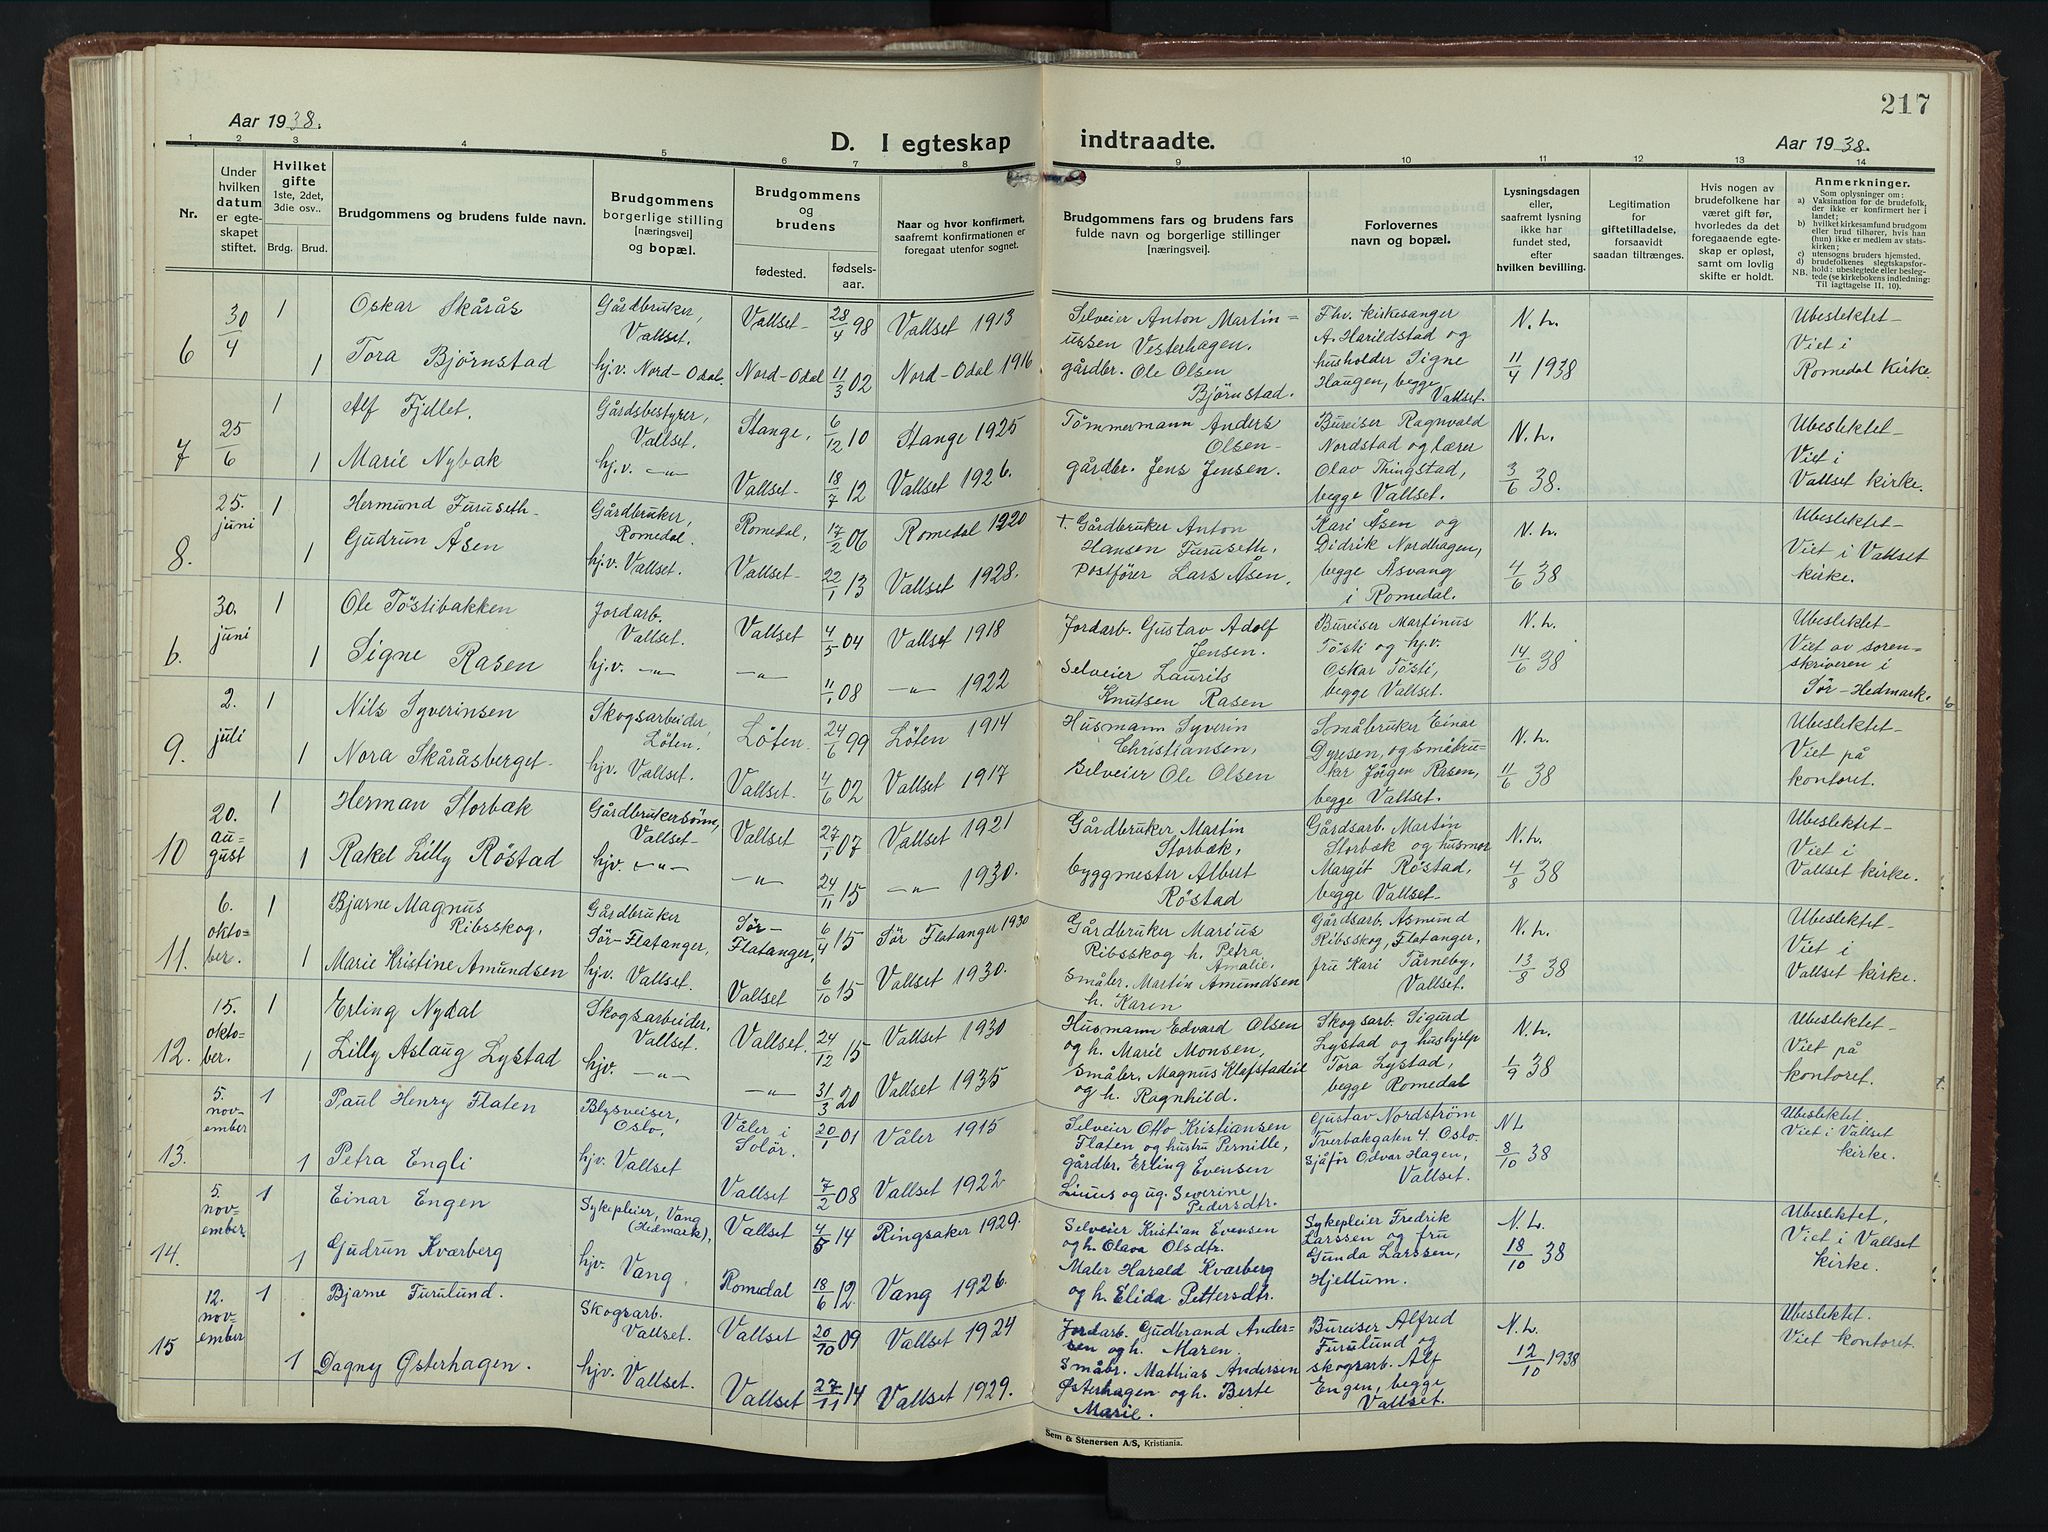 217
Aar 1938.
D. I egteskap indtraadte.
Aar 1938.
1 2 3 4 5 6 7 8 9 10 11 12 13 14
Nr.
Under hvilken datum er egteskapet stiftet.
Hvilket gifte 1ste, 2det, 3die osv.. Brdg. Brud.
Brudgommens og brudens fulde navn.
Brudgommens borgerlige stilling [næringsvei] og bopæl.
Brudgommens og brudens fødested. fødselsaar.
Naar og hvor konfirmert, saafremt konfirmationen er foregaat utenfor sognet.
Brudgommens fars og brudens fars fulde navn og borgerlige stillinger [næringsvei]
Forlovernes navn og bopæl.
Lysningsdagen eller, saafremt lysning ikke har fundet sted, efter hvilken bevilling.
Legitimation for giftetilladelse, forsaavidt saadan tiltrænges.
Hvis nogen av brudefolkene har været gift før, hvorledes da det foregaaende egteskap er opløst, samt om lovlig skifte er holdt.
Anmerkninger.
Som oplysninger om:
a) Vaksination for de brudefolk, der ikke er konfirmert her i landet;
b) hvilket kirkesamfund brudgom eller brud tilhører, hvis han (hun) ikke er medlem av statskirken;
c) utensogns bruders hjemsted.
d) brudefolkenes slegtskapsforhold: ubeslegtede eller beslegtede (se kirkebokens indledning:
NB. Til iagttagelse II, 10).
6 30/4 1 Oskar Skårås Gårdbruker, Vallset. Vallset 28/4 98 Vallset 1913 Selveier Anton Martinussen Vesterhagen. Fhv. kirkesanger A. Harildstad og husholder Signe Haugen, begge Vallset. N. L. 11/4 1938 Ubeslektet Viet i Romedal Kirke.
1 Tora Bjørnstad hj.v. Nord-Odal. Nord-Odal 11/3 02 Nord-Odal 1916 gårdbr. Ole Olsen Bjørnstad.
7 25/6 1 Alf Fjellet. Gårdsbestyrer, Vallset. Stange, 6/12 10 Stange 1925 Tömmermann Anders Olsen Bureiser Ragnvald Nordstad og lærer Olav Thingstad, begge Vallset. N. L. 3/6 38. Ubeslektet Viet i Vallset kirke.
1 Marie Nybak hj.v. -"- Vallset 18/7 12 Vallset 1926. gårdbr. Jens Jensen.
8. 25. juni 1 Hermund Furuseth Gårdbruker, Romedal. Romedal, 17/2 06 Romedal 1920 + Gårdbruker Anton Hansen Furuseth, Kari Åsen og Didrik Nordhagen, begge Åsvang i Romedal. N. L. 4/6 38 Ubeslektet Viet i Vallset kirke.
1 Gudrun Åsen hj.v. Vallset. Vallset 22/1 13 Vallset 1928. Postfører Lars Åsen,
6. 30. juni 1 Ole Töstibakken Jordarb. Vallset. Vallset 4/5 04 Vallset 1918 Jordarb. Gustav Adolf Jensen. Bureiser Martinus Tösti og hj.v. Oskar Tösti, begge Vallset. N. L. 14/6 38 Ubeslektet Viet av sorenskriveren i Sør-Hedmark.
1 Signe Rasen hj.v. -"- -"- 11/1 08 -"- 1922 Selveier Laurits Knutsen Rasen
9. 2. juli 1 Nils Syverinsen Skogsarbeider, Löten. Löten. 24/6 99 Löten 1914 Husmann Syverin Christiansen, Småbruker Einar Dyresen, og småbruker Jörgen Rasen, begge Vallset. N. L. 11/6 38 Ubeslektet Viet på kontoret.
1 Nora Skåråsberget hjv. Vallset. Vallset. 4/6 02 Vallset 1917 Selveier Ole Olsen
10 20. august 1 Herman Storbæk Gårdbrukersönn, Vallset Vallset 27/1 07 Vallset 1921 Gårdbruker Martin Storbæk, Gårdsarb. Martin Storbæk og husmor Margit Röstad, begge Vallset N. L. 4/8 38 Ubeslektet Viet i Vallset kirke.
1 Rakel Lilly Röstad hjv. -"- -"- 24/11 15 -"- 1930. byggmester Albert Röstad
11. 6. oktober. 1 Bjarne Magnus Ribsskog, Gårdbruker Sör-Flatanger, Sör-Flatanger, 6/4 15 Sör Flatanger 1930 Gårdbruker Marius Ribsskog h. Petra Amalie. Gårdsarb. Asmund Ribsskog, Flatanger, fru Kari Tårneby, Vallset. N. L. 13/8 38 Ubeslektet Viet i Vallset kirke.
1 Marie Kristine Amundsen hjv. Vallset. Vallset 6/10 15 Vallset 1930. Småbr. Martin Amundsen h. Karen
12. 15. oktober. 1 Erling Nydal Skogsarbeider, Vallset. Vallset. 24/12 15 Vallset 1930 Husmann Edvard Olsen og h. Marie Monsen, Skogsarb. Sigurd Lystad og hushjelp Tora Lystad, begge Romedal N. L. 1/9 38 Ubeslektet Viet på kontoret.
1 Lilly Aslaug Lystad hjv. -"- -"- 31/3 20 Vallset 1935 Småbr. Magnus Klefstadeie og h. Ragnhild.
13. 5. november 1 Paul Henry Flaten Blysveiser, Oslo, Våler i Solör. 20/1 01 Våler 1915 Selveier Otto Kristiansen Flaten og hustru Pernille, Gustav Nordström Tverbakgaten 4. Oslo. Sjåför Odvar Hagen, Vallset. N. L. 8/10 38 Ubeslektet. Viet i Vallset kirke.
1 Petra Engli hjv. Vallset Vallset 7/2 08 Vallset 1922 gårdbr. Erling Evensen Linus og ug. Severine Pedersdtr.
14. 5. november 1 Einar Engen Sykepleier, Vang (Hedmark), Vallset 4/5 14 Ringsaker 1929. Selveier Kristian Evensen og h. Olava Olsdtr. Sykepleier Fredrik Larssen og fru Gunda Larssen, Hjellum. N. L. 18/10 38 Ubeslektet, Viet i Vallset kirke.
1 Gudrun Kværberg hjv. Vang, Romedal 18/6 12 Vang 1926. Maler Harald Kværberg og h. Elida Pettersdtr.
15 12. november 1 Bjarne Furulund. Skogsarb. Vallset. Vallset 20/10 09 Vallset 1924 Jordarb. Gudbrand Andersen og h. Maren. Bureiser Alfred Furulund og skogsarb. Alf Engen, begge Vallset. N. L. 12/10 1938 Ubeslektet. Viet kontoret.
1 Dagny Østerhagen. hjv. Vallset. Vallset 27/11 14 Vallset 1929. Småbr. Mathias Andersen Østerhagen og h. Berte Marie.
Sem & Stenersen A/S, Kristiania.